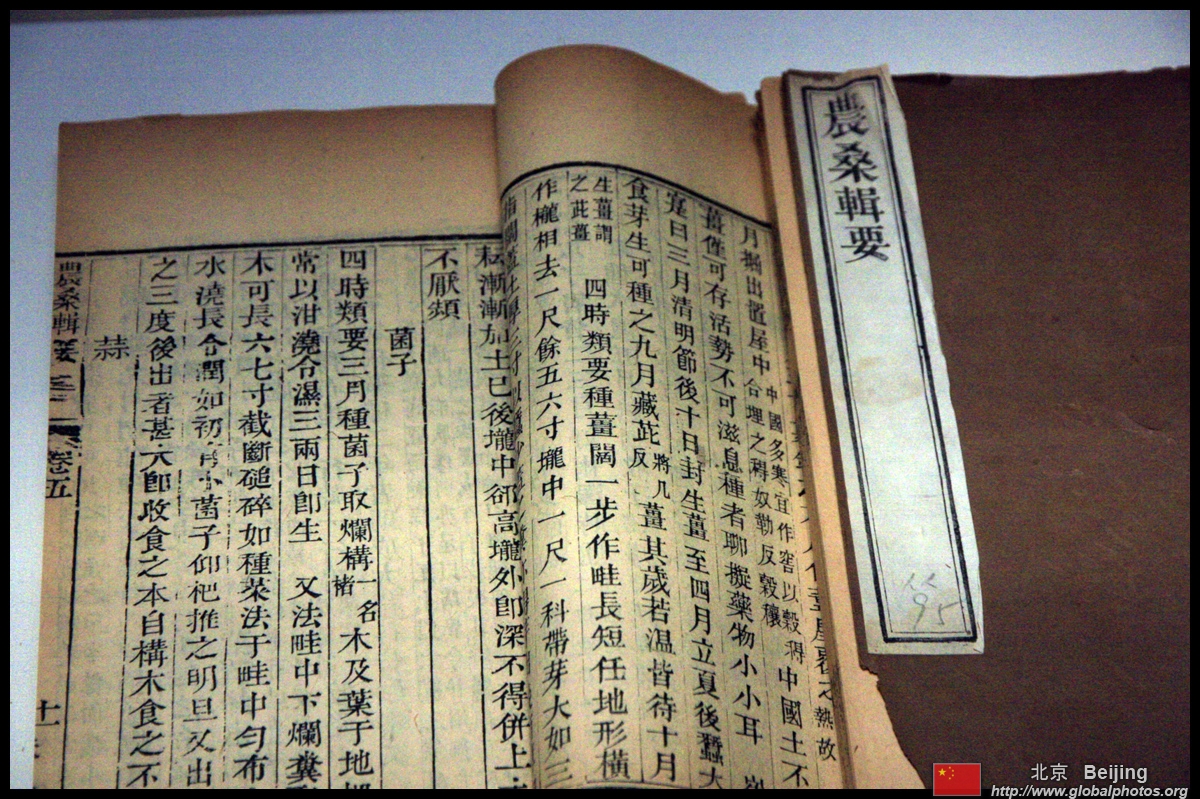 農桑輯要
屋覆之熱故
月掘出置屋中中國多寒宜作窖以穀䅌合埋之䅌奴勒反穀穰中國土不
薑僅可存活勢不可滋息種者聊擬藥物小小耳
寔曰三月清明節後十日封生薑至四月立夏後蠶大
食芽生可種之九月藏茈將几反薑其歲若溫皆待十月
生薑謂之茈薑 四時類要種薑闊一步作畦長短任地形橫
作櫳相去一尺餘五六寸壠中一尺一科帶芽大如三
耘漸漸加土已後壠中郤高壠外卽深不得併上
不厭頻
菌子
四時類要三月種菌子取爛構一名楮木及葉于地
常以泔澆令濕三兩日卽生 又法畦中下爛糞
木可長六七寸截斷磓碎如種菜法于畦中勻布
水澆長令潤如初有小菌子仰杷推之明旦又出
之三度後出者甚大卽收食之本自構木食之不
蒜
農桑輯要 卷五 十一
北京 Beijing
http://www.globalphotos.org